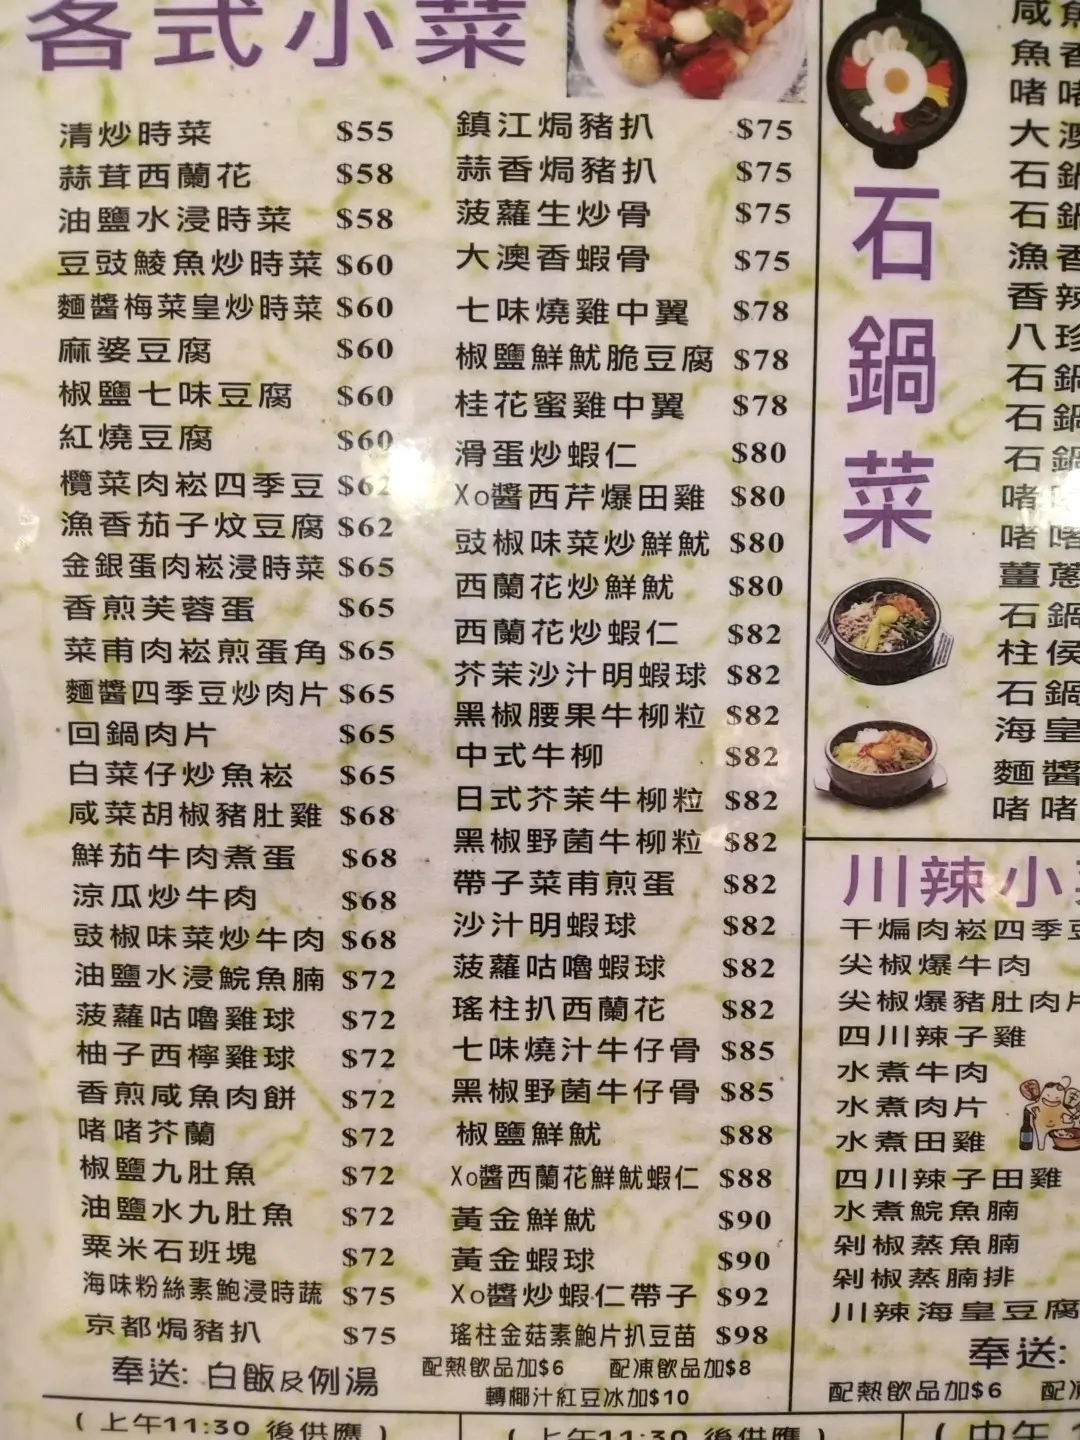 各式小菜
清炒時菜 $55
蒜茸西蘭花 $58
油鹽水浸時菜 $58
豆豉鯪魚炒時菜 $60
麵醬梅菜皇炒時菜 $60
麻婆豆腐 $60
椒鹽七味豆腐 $60
紅燒豆腐 $60
欖菜肉崧四季豆 $62
漁香茄子炆豆腐 $62
金銀蛋肉崧浸時菜 $65
香煎芙蓉蛋 $65
菜甫肉崧煎蛋角 $65
麵醬四季豆炒肉片 $65
回鍋肉片 $65
白菜仔炒魚崧 $65
咸菜胡椒豬肚雞 $68
鮮茄牛肉煮蛋 $68
涼瓜炒牛肉 $68
豉椒味菜炒牛肉 $68
油鹽水浸鯇魚腩 $72
菠蘿咕嚕雞球 $72
柚子西檸雞球 $72
香煎咸魚肉餅 $72
啫啫芥蘭 $72
椒鹽九肚魚 $72
油鹽水九肚魚 $72
粟米石班塊 $72
海味粉絲素鮑浸時蔬 $75
京都焗豬扒 $75
奉送: 白飯及例湯
鎮江焗豬扒 $75
蒜香焗豬扒 $75
菠蘿生炒骨 $75
大澳香蝦骨 $75
七味燒雞中翼 $78
椒鹽鮮魷脆豆腐 $78
桂花蜜雞中翼 $78
滑蛋炒蝦仁 $80
Xo醬西芹爆田雞 $80
豉椒味菜炒鮮魷 $80
西蘭花炒鮮魷 $80
西蘭花炒蝦仁 $82
芥茉沙汁明蝦球 $82
黑椒腰果牛柳粒 $82
中式牛柳 $82
日式芥茉牛柳粒 $82
黑椒野菌牛柳粒 $82
帶子菜甫煎蛋 $82
沙汁明蝦球 $82
菠蘿咕嚕蝦球 $82
瑤柱扒西蘭花 $82
七味燒汁牛仔骨 $85
黑椒野菌牛仔骨 $85
椒鹽鮮魷 $88
Xo醬西蘭花鮮魷蝦仁 $88
黃金鮮魷 $90
黃金蝦球 $90
Xo醬炒蝦仁帶子 $92
瑤柱金菇素鮑片扒豆苗 $98
配熱飲品加$6 配凍飲品加$8
轉椰汁紅豆冰加$10
(上午11:30 後供應)
(上午11:30 後供應)
石鍋菜
咸魚
魚香
啫啫
大澳
石鍋
石鍋
漁香
香辣
八珍
石鍋
石鍋
石鍋
啫
啫啫
薑蔥
石鍋
柱侯
石鍋
海皇
麵醬
啫啫
川辣小
干煸肉崧四季豆
尖椒爆牛肉
尖椒爆豬肚肉片
四川辣子雞
水煮牛肉
水煮肉片
水煮田雞
四川辣子田雞
水煮鯇魚腩
剁椒蒸魚腩
剁椒蒸腩排
川辣海皇豆腐
奉送:
配熱飲品加$6 配
(中午 1